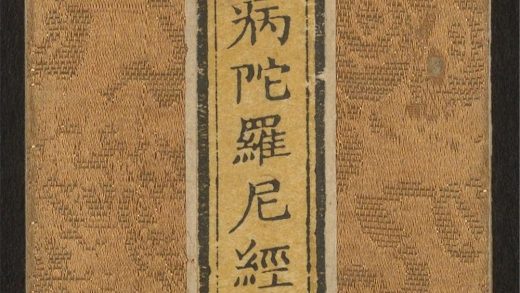 病陀羅尼經